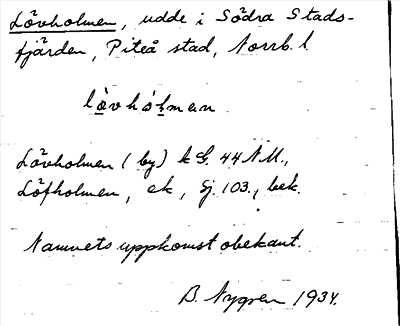 Lövholmen, udde i Södra Stads-
fjärden, Piteå stad, Norrb. l
lövhólman
Lövholmen (by) k G. 44 N.M.,
Löfholmen, ek, Gj. 103., bek.
Namnets uppkomst obekant.
B. Nygren 1934.